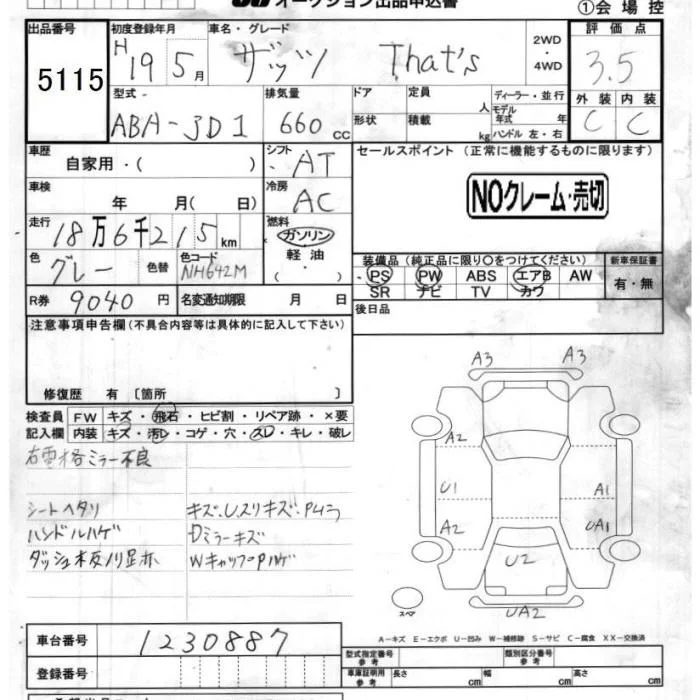 オークション出品申込書
①会場控
出品番号 初度登録年月 車名・グレード 評価点
5115 H 19 5月 ザッツ That's 2WD・4WD 3.5
型式 排気量 ドア 定員 人 ディーラー・並行 外装 内装
ABA-JD1 660cc 形状 積載 kg モデル年式 年 ハンドル 左・右 C C
車歴 シフト セールスポイント (正常に機能するものに限ります)
自家用・( ) AT
車検 冷房 NOクレーム・売切
年 月( 日) AC
走行 燃料
18万6千215km ガソリン
色 色替 色コード 軽油 装備品(純正品に限り○をつけてください) 新車保証書
グレー NH642M ・( ) PS PW ABS エアB AW 有・無
SR ナビ TV カワ
R券 9040円 名変通知期限 月 日 後日品
注意事項申告欄(不具合内容等は具体的に記入して下さい)
修復歴 有 [箇所 ]
検査員 FW キズ・飛石・ヒビ割・リペア跡・×要
記入欄 内装 キズ・汚レ・コゲ・穴・スレ・キレ・破レ
右電格ミラー不良
シートヘタリ キズ、Uスリキズ、P
ハンドルハゲ Dミラーキズ
ダッシュ板ノリ足亦 WキャップPハゲ
A3 A3
A2
U1 A1
A2 UA1
U2
スペア
UA2
A-キズ E-エクボ U-凹み W-補修跡 S-サビ C-腐食 XX-交換済
車台番号 1230887
型式指定番号 参考 類別区分番号 参考
登録番号 車庫証明用 参考 長さ cm 幅 cm 高さ cm